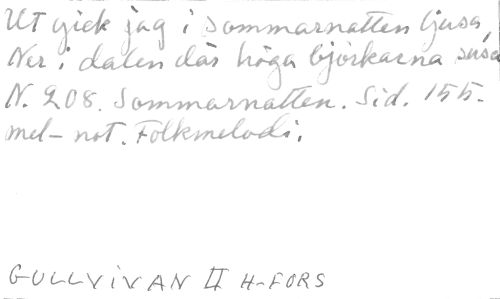 Ut gick jag i sommarnatten ljusa,
Ner i dalen där höga björkarna susa
N. 208. Sommarnatten. Sid. 155.
mel- not. Folkmelodi.
GULLVIVAN II H-FORS